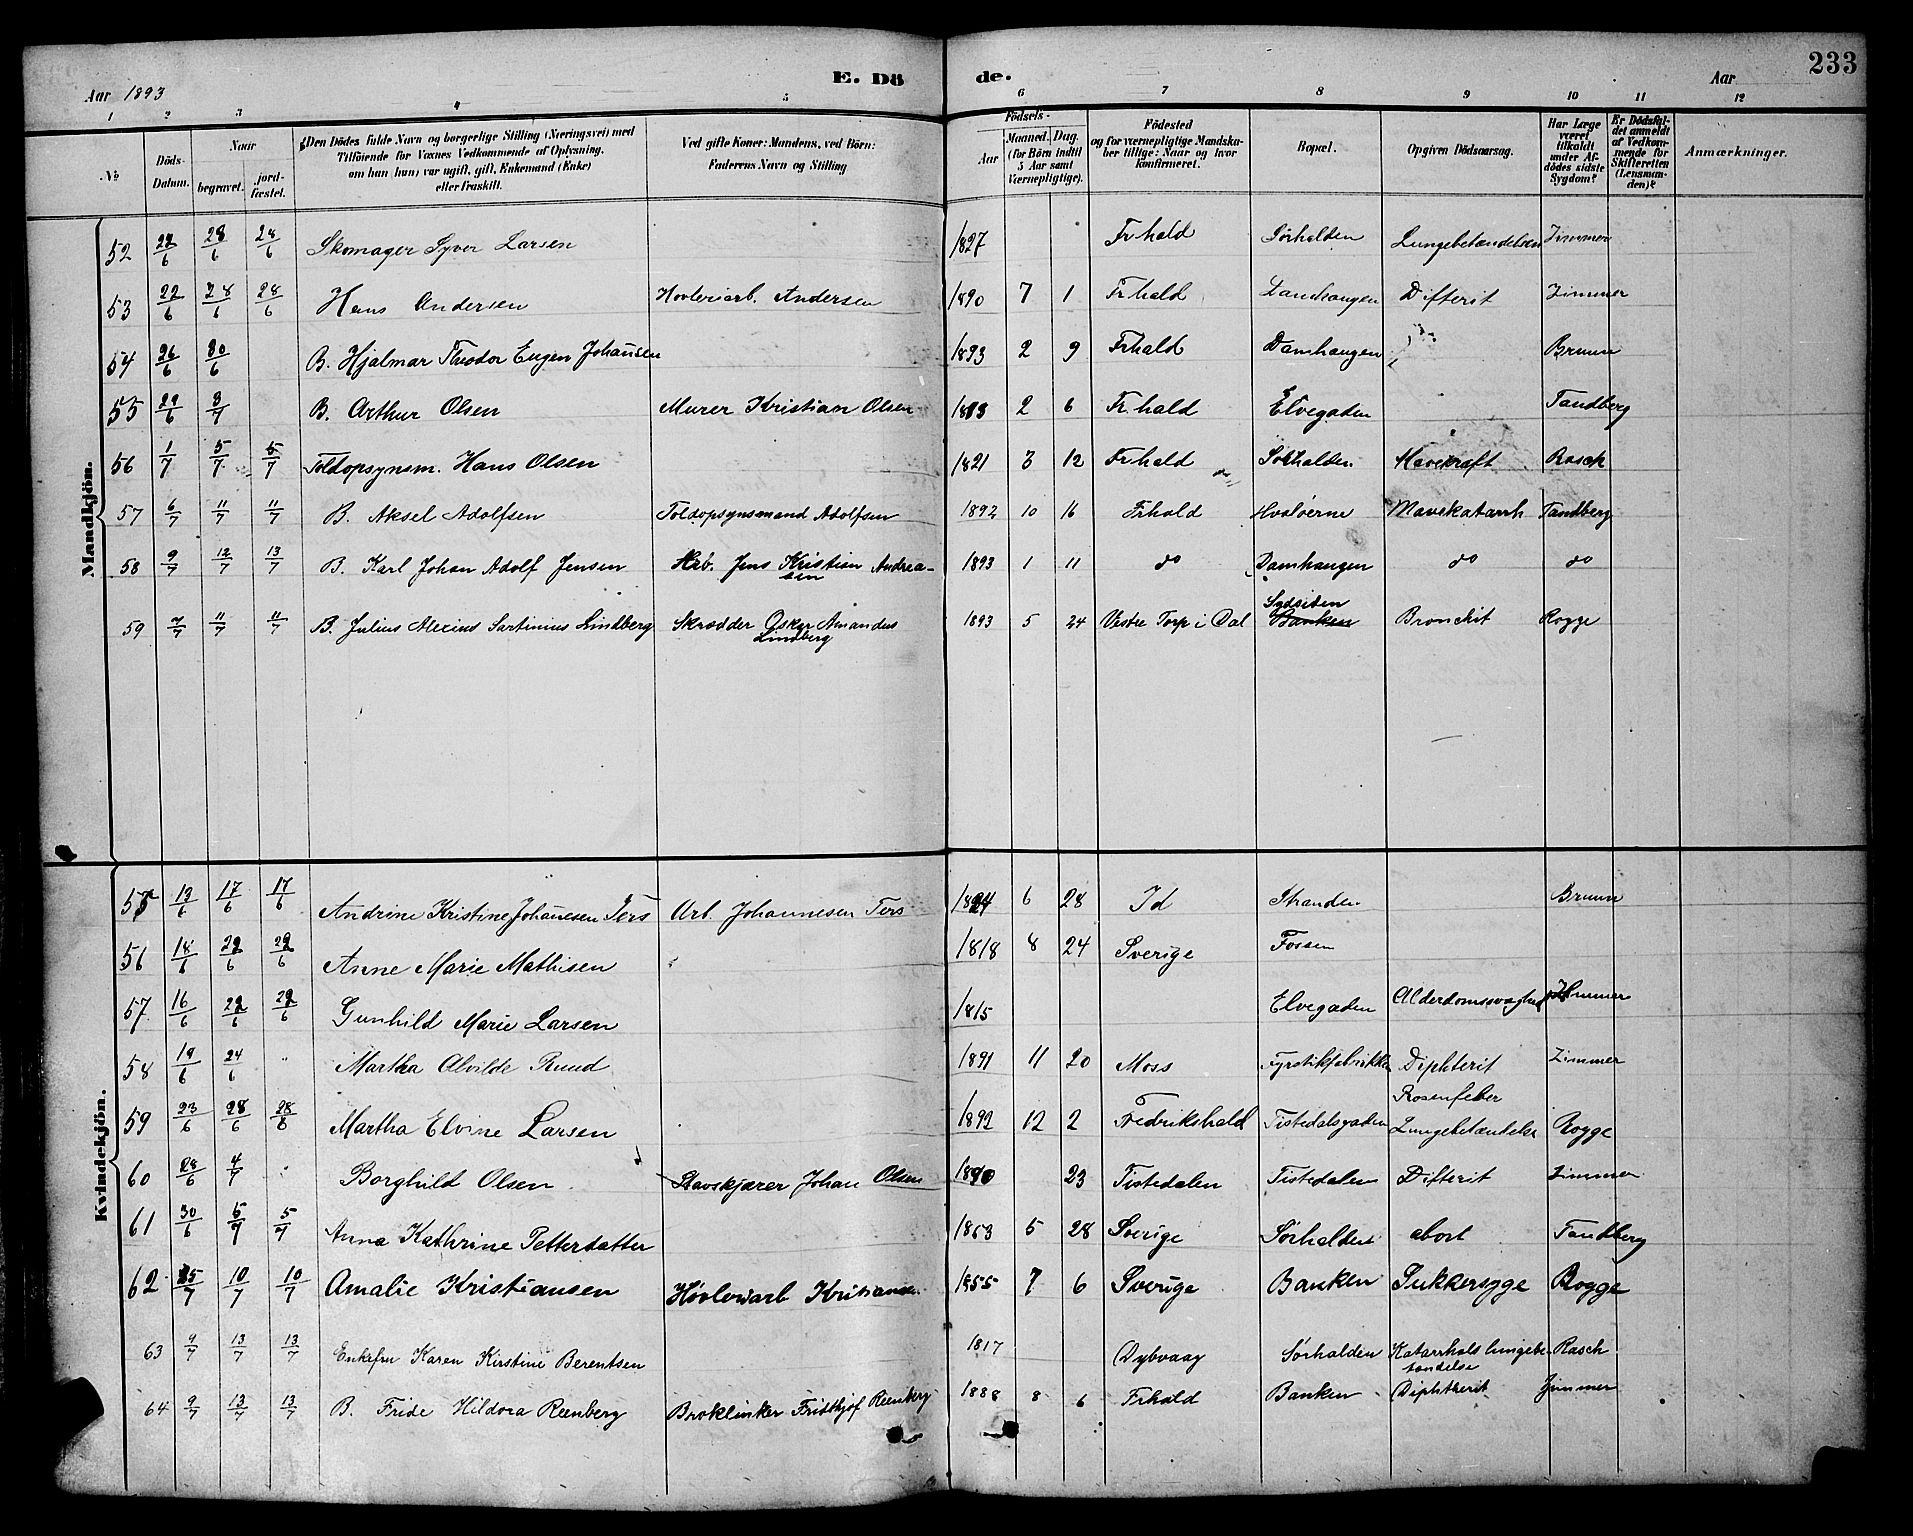 E. Dö de.
233
Aar 1893
Aar
1 2 3 4 5 6 7 8 9 10 11 12
No
Döds-Datum.
Naar
begravet.
jord-fæstet.
Den Dödes fulde Navn og borgerlige Stilling (Næringsvei) med
Tilföiende for Voxnes Vedkommende af Oplysning,
om han (hun) var ugift, gift, Enkemand (Enke)
eller fraskilt.
Ved gifte Koner: Mandens, ved Börn:
Faderens Navn og Stilling
Födsels-
Aar
Maaned. Dag.
(for Börn indtil
5 Aar samt
Værnepligtige).
Födested
og for værnepligtige Mandska-
ber tillige: Naar og hvor
konfirmeret.
Bopæl.
Opgiven Dödsaarsag.
Har Læge
været
tilkaldt
under Af-
dödes sidste
Sygdom?
Er Dödsfal-
det anmeldt
af Vedkom-
mende for
Skifteretten
(Lensman-
den)?
Anmærkninger.
Mandkjön.
52 28/6 28/6 Skomager Syver Larsen 1827 Fr.hald Sørhalden Lungebetændelsen Zimmer
53 22/6 28/6 28/6 Hans Andersen Høvleriarb. Andersen 1890 7 1 Fr.hald Damhaugen Difterit Zimmer
54 26/6 30/6 B. Hjalmar Theodor Eugen Johansen 1893 2 9 Frhald Damhaugen Bruun
55 29/6 3/7 B. Arthur Olsen Murer Kristian Olsen 2 6 Fr.hald Elvegaden Tandberg
56 1/7 5/7 5/7 Toldopsynsm. Hans Olsen 1821 3 12 Fr.hald Sørhalden Mavekræft Rasch
57 6/7 11/7 11/7 B. Aksel Adolfsen Toldopsynsmand Adolfsen 1892 10 16 Frhald Hvaløerne Mavekatarrh Tandberg
58 9/7 12/7 13/7 B. Karl Johan Adolf Jensen Arb. Jens Kristian Andrea-
sen 1893 1 11 do Damhaugen do do
59 7/7 11/7 11/7 B. Julius Alexius Sartinius Lindberg Skrædder Oskar Amandus
Lindberg 1893 5 24 Vestre Torp i Dal Sydsiden Banken Bronchit Rogge
Kvindekjön.
55 13/6 17/6 17/6 Andrine Kristine Johannesen Ters Arb. Johannesen Ters 1824 6 28 Id Stranden Bruun
56 18/6 22/6 22/6 Anne Marie Mathisen 1818 8 24 Sverige Fossen
57 16/6 22/6 22/6 Gunhild Marie Larsen 1815 Elvegaden Alderdomssvaghed Zimmer
58 19/6 24/6 " Martha Alvilde Ruud 1891 11 20 Moss Fyrstikfabrikken Diphterit Zimmer
59 23/6 28/6 28/6 Martha Elvine Larsen 1892 12 2 Fredrikshald Tistedalsgaden Rosenfeber
Lungebetændelse Rogge
60 28/6 4/7 Borghild Olsen Stavskjærer Johan Olsen 1890 23 Tistedalen Tistedalen Difterit Zimmer
61 30/6 5/7 5/7 Anna Kathrine Petterdatter 1853 5 28 Sverige Sørhalden abort Tandberg
62 5/7 10/7 10/7 Amalie Kristiansen Høvleriarb Kristiansen 1855 7 6 Sverige Banken Sukkersyge Rogge
63 9/7 13/7 13/7 Enkefru Karen Kirstine Berentsen 1817 Dybvaag Sørhalden Katarrhalslungebe-
tændelse Rasch
64 9/7 13/7 13/7 B. Fride Hildora Reenberg Broklinker Fridthjof Reenberg 1888 8 6 Frhald Banken Diphtherit Zimmer